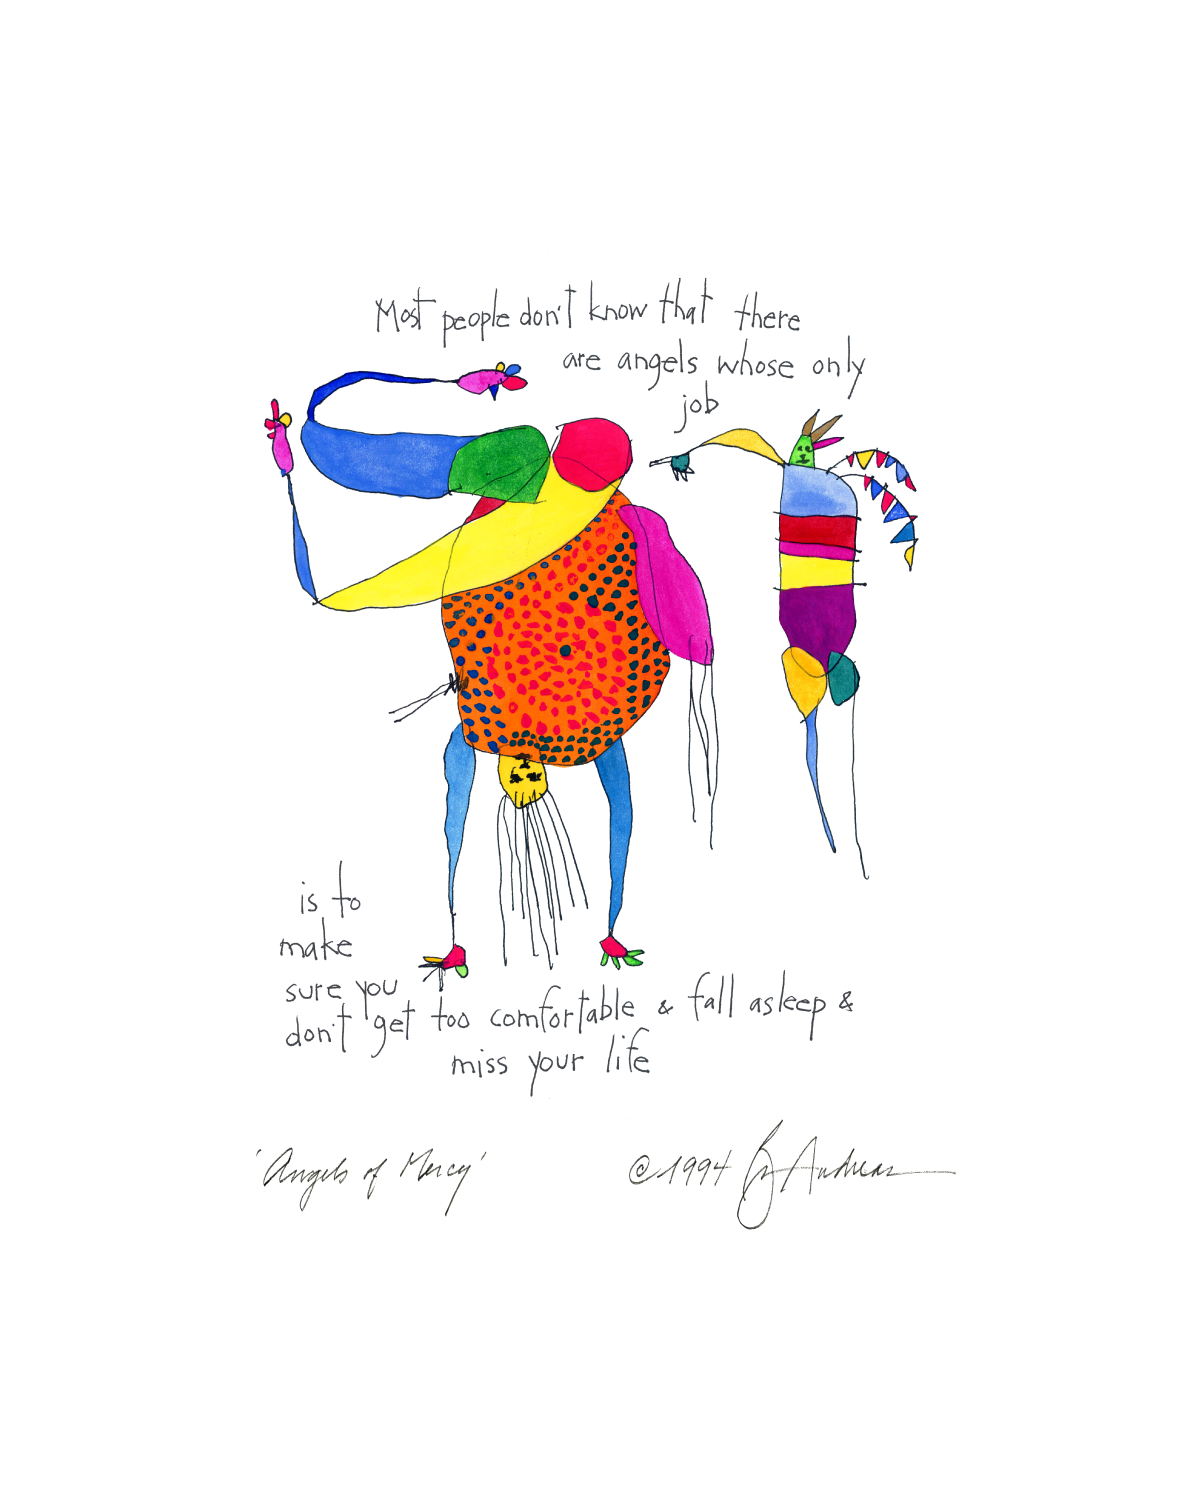 Most people don't know that there
are angels whose only
job
is to
make
sure you
don't get too comfortable & fall asleep &
miss your life
'Angels of Mercy'
©1994 Andreas